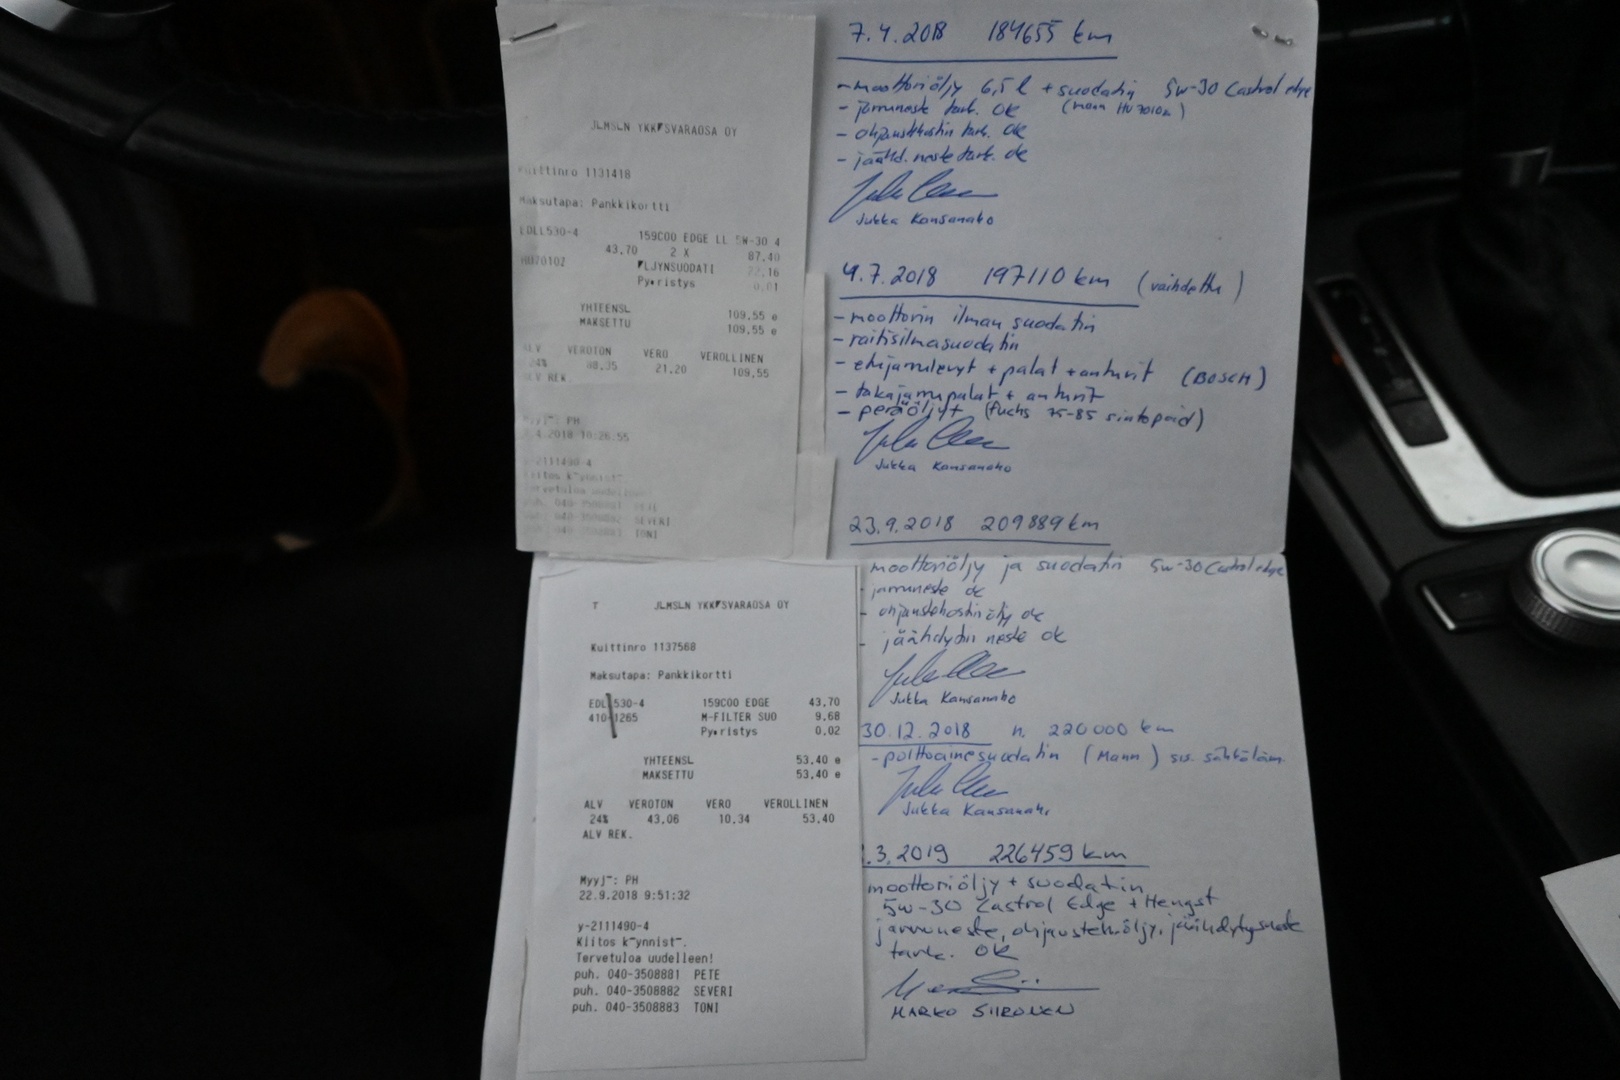 JLMSLN YKK SVARAOSA OY
Kuittinro 1131418
Maksutapa: Pankkikortti
EDLL530-4 159C00 EDGE LL 5W-30 4
43,70 2 X 87,40
HU7010Z LJYNSUODATI 22,16
Py ristys 0,01
YHTEENSL 109,55 e
MAKSETTU 109,55 e
ALV VEROTON VERO VEROLLINEN
24% 88,35 21,20 109,55
ALV REK.
Myyj¨: PH
.4.2018 10:26:55
y-2111490-4
Kiitos k¨ynnist¨.
Tervetuloa uudelleen!
puh. 040-3508881 PETE
puh. 040-3508882 SEVERI
puh. 040-3508883 TONI
7.4.2018 184655 km
- moottoriöljy 6,5 l + suodatin 5w-30 Castrol edge
- jarruneste tark. OK (Mann HU7010z)
- ohjaustehostin tark. OK
- jäähd. neste tark. ok
Jukka Kansanaho
4.7.2018 197110 km (vaihdettu)
- moottorin ilman suodatin
- raitisilmasuodatin
- etujarrulevyt + palat + anturit (BOSCH)
- takajarrupalat + anturit
- peräöljyt (fuchs 75-85 sintopoid)
Jukka Kansanaho
23.9.2018 209889 km
moottoriöljy ja suodatin 5w-30 Castrol edge
- jarruneste ok
- ohjaustehostinöljy ok
- jäähdytin neste ok
Jukka Kansanaho
30.12.2018 n. 220000 km
- polttoainesuodatin (Mann) sis. sähköläm.
Jukka Kansanaho
.3.2019 226459 km
moottoriöljy + suodatin
5w-30 Castrol Edge + Hengst
jarruneste, ohjaustehöljy, jäähdytysneste
tark. OK
MARKO SIIRONEN
T JLMSLN YKK SVARAOSA OY
Kuittinro 1137568
Maksutapa: Pankkikortti
EDL 530-4 159C00 EDGE 43,70
410-1265 M-FILTER SUO 9,68
Py ristys 0,02
YHTEENSL 53,40 e
MAKSETTU 53,40 e
ALV VEROTON VERO VEROLLINEN
24% 43,06 10,34 53,40
ALV REK.
Myyj¨: PH
22.9.2018 9:51:32
y-2111490-4
Kiitos k¨ynnist¨.
Tervetuloa uudelleen!
puh. 040-3508881 PETE
puh. 040-3508882 SEVERI
puh. 040-3508883 TONI